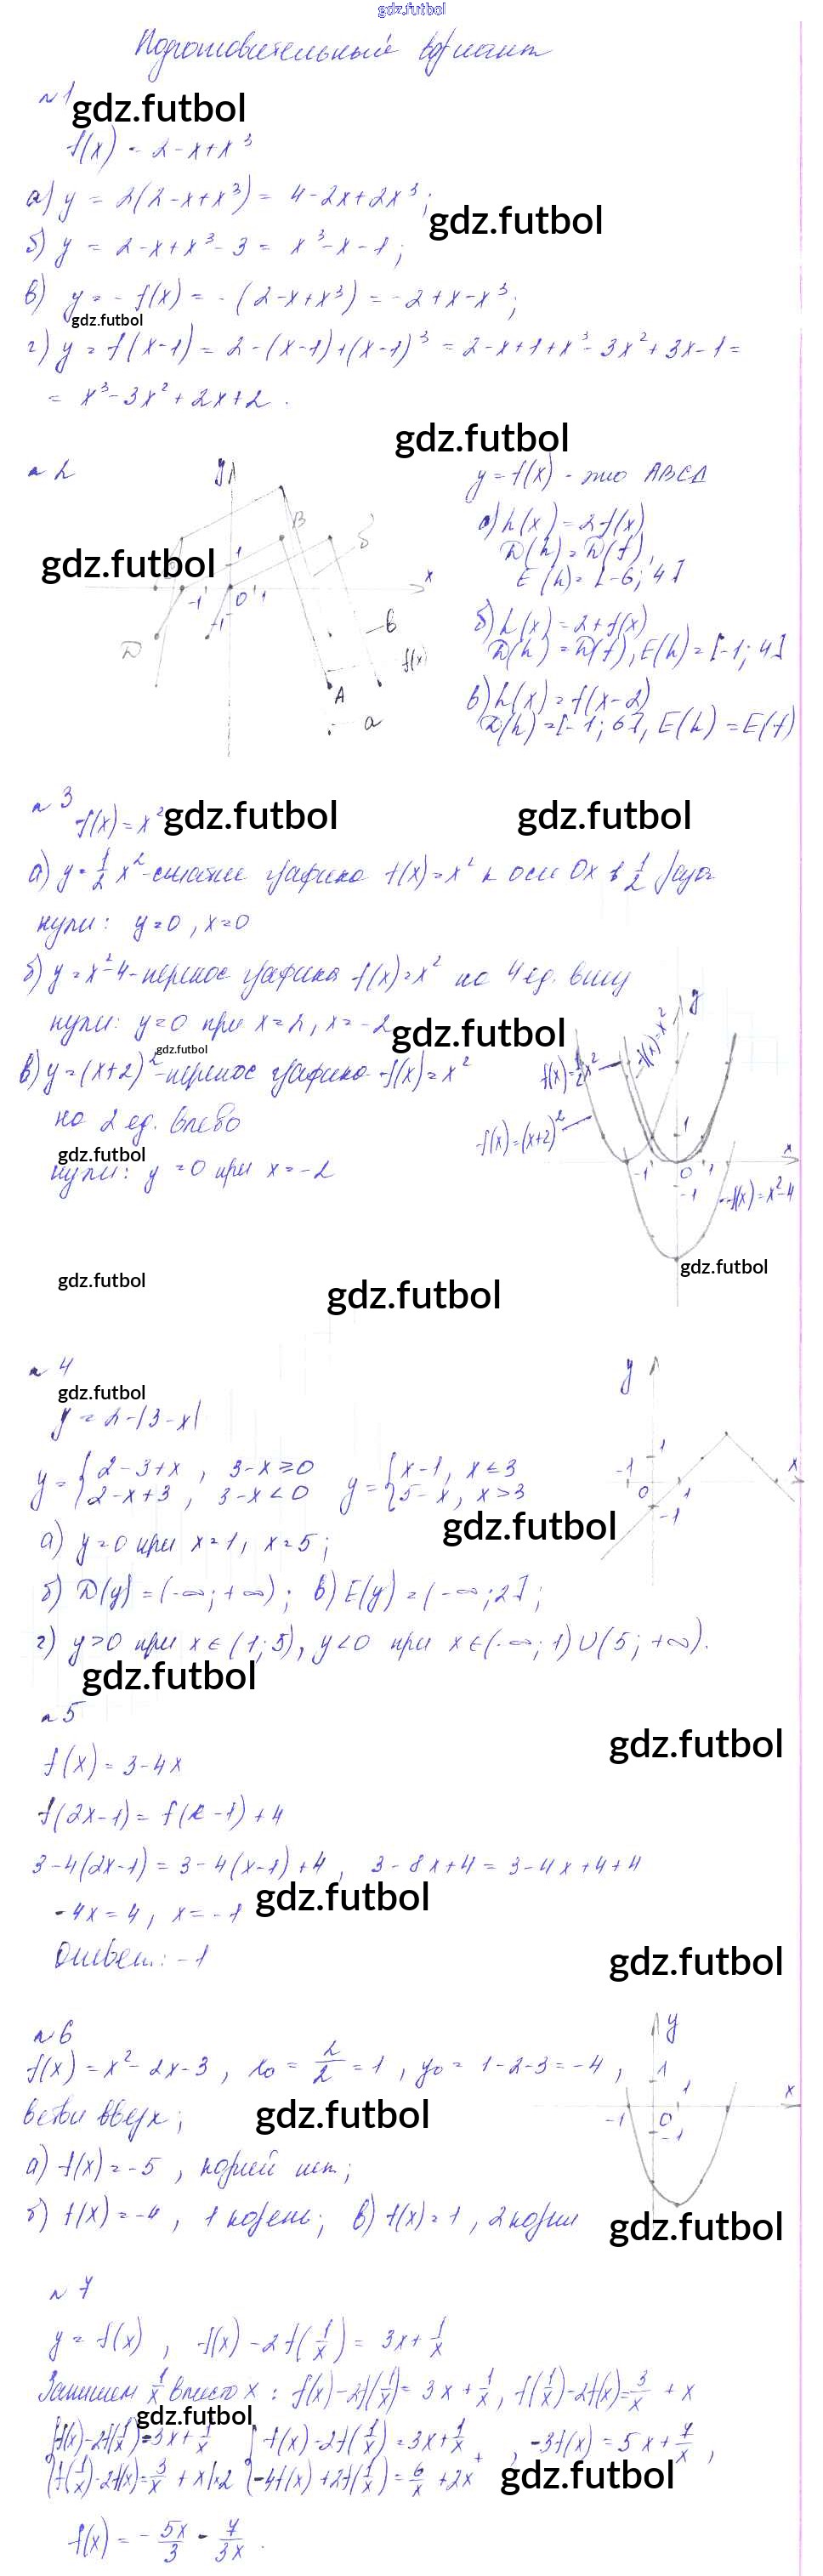 gdz.futbol
Подготовительный вариант
№1
gdz.futbol
f(x) = 2-x+x³
а) y = 2(2-x+x³) = 4-2x+2x³;
gdz.futbol
б) y = 2-x+x³-3 = x³-x-1;
в) y = -f(x) = -(2-x+x³) = -2+x-x³;
gdz.futbol
г) y = f(x-1) = 2-(x-1)+(x-1)³ = 2-x+1+x³-3x²+3x-1=
= x³-3x²+2x+2.
gdz.futbol
№2
y
y=f(x) - это ABCD
B
а) h(x)=2f(x)
б
D(h)=D(f),
gdz.futbol
1
x
E(h)=[-6;4]
-1
0
1
-1
б) h(x)=2+f(x)
в
D
D(h)=D(f), E(h)=[-1;4]
f(x)
A
в) h(x)=f(x-2)
a
D(h)=[-1;6], E(h)=E(f)
№3
f(x)=x²
gdz.futbol
gdz.futbol
а) y=1/2 x²-сжатие графика f(x)=x² к оси Ox в 1/2 раза
нули: y=0, x=0
б) y=x²-4-перенос графика f(x)=x² на 4 ед. вниз
нули: y=0 при x=2, x=-2
gdz.futbol
gdz.futbol
в) y=(x+2)²-перенос графика f(x)=x²
на 2 ед. влево
gdz.futbol
нули: y=0 при x=-2
y
f(x)=1/2x²
f(x)=x²
f(x)=(x+2)²
1
x
-1
0
1
-1
f(x)=x²-4
gdz.futbol
gdz.futbol
gdz.futbol
№4
gdz.futbol
y = 2-|3-x|
y={2-3+x, 3-x≥0 y={x-1, x≤3
2-x+3, 3-x<0 5-x, x>3
y
-1
1
x
0
1
-1
gdz.futbol
а) y=0 при x=1, x=5;
б) D(y)=(-∞;+∞); в) E(y)=(-∞;2];
г) y>0 при x∈(1;5), y<0 при x∈(-∞;1)∪(5;+∞).
gdz.futbol
№5
gdz.futbol
f(x)=3-4x
f(2x-1)=f(x-1)+4
3-4(2x-1)=3-4(x-1)+4, 3-8x+4=3-4x+4+4
-4x=4, x=-1
gdz.futbol
Ответ: -1
gdz.futbol
№6
f(x)=x²-2x-3, x₀=2/2=1, y₀=1-2-3=-4,
y
1
1
x
-1
0
-1
ветви вверх;
gdz.futbol
а) f(x)=-5, корней нет;
б) f(x)=-4, 1 корень; в) f(x)=1, 2 корня
gdz.futbol
№7
y=f(x), f(x)-2f(1/x)=3x+1/x
Запишем 1/x вместо x: f(x)-2f(1/x)=3x+1/x, f(1/x)-2f(x)=3/x+x
gdz.futbol
{f(x)-2f(1/x)=3x+1/x {f(x)-2f(1/x)=3x+1/x +, -3f(x)=5x+7/x,
{f(1/x)-2f(x)=3/x+x|·2 {-4f(x)+2f(1/x)=6/x+2x
gdz.futbol
f(x)=-5x/3-7/3x.